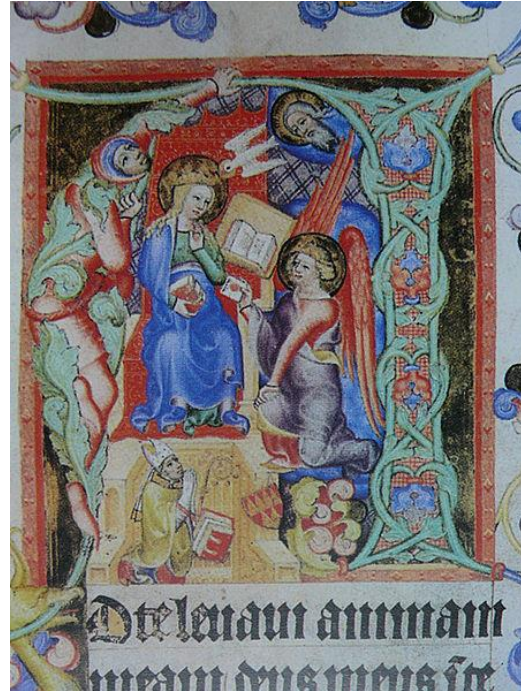 D te leuaui animam
meam deus meus ī te